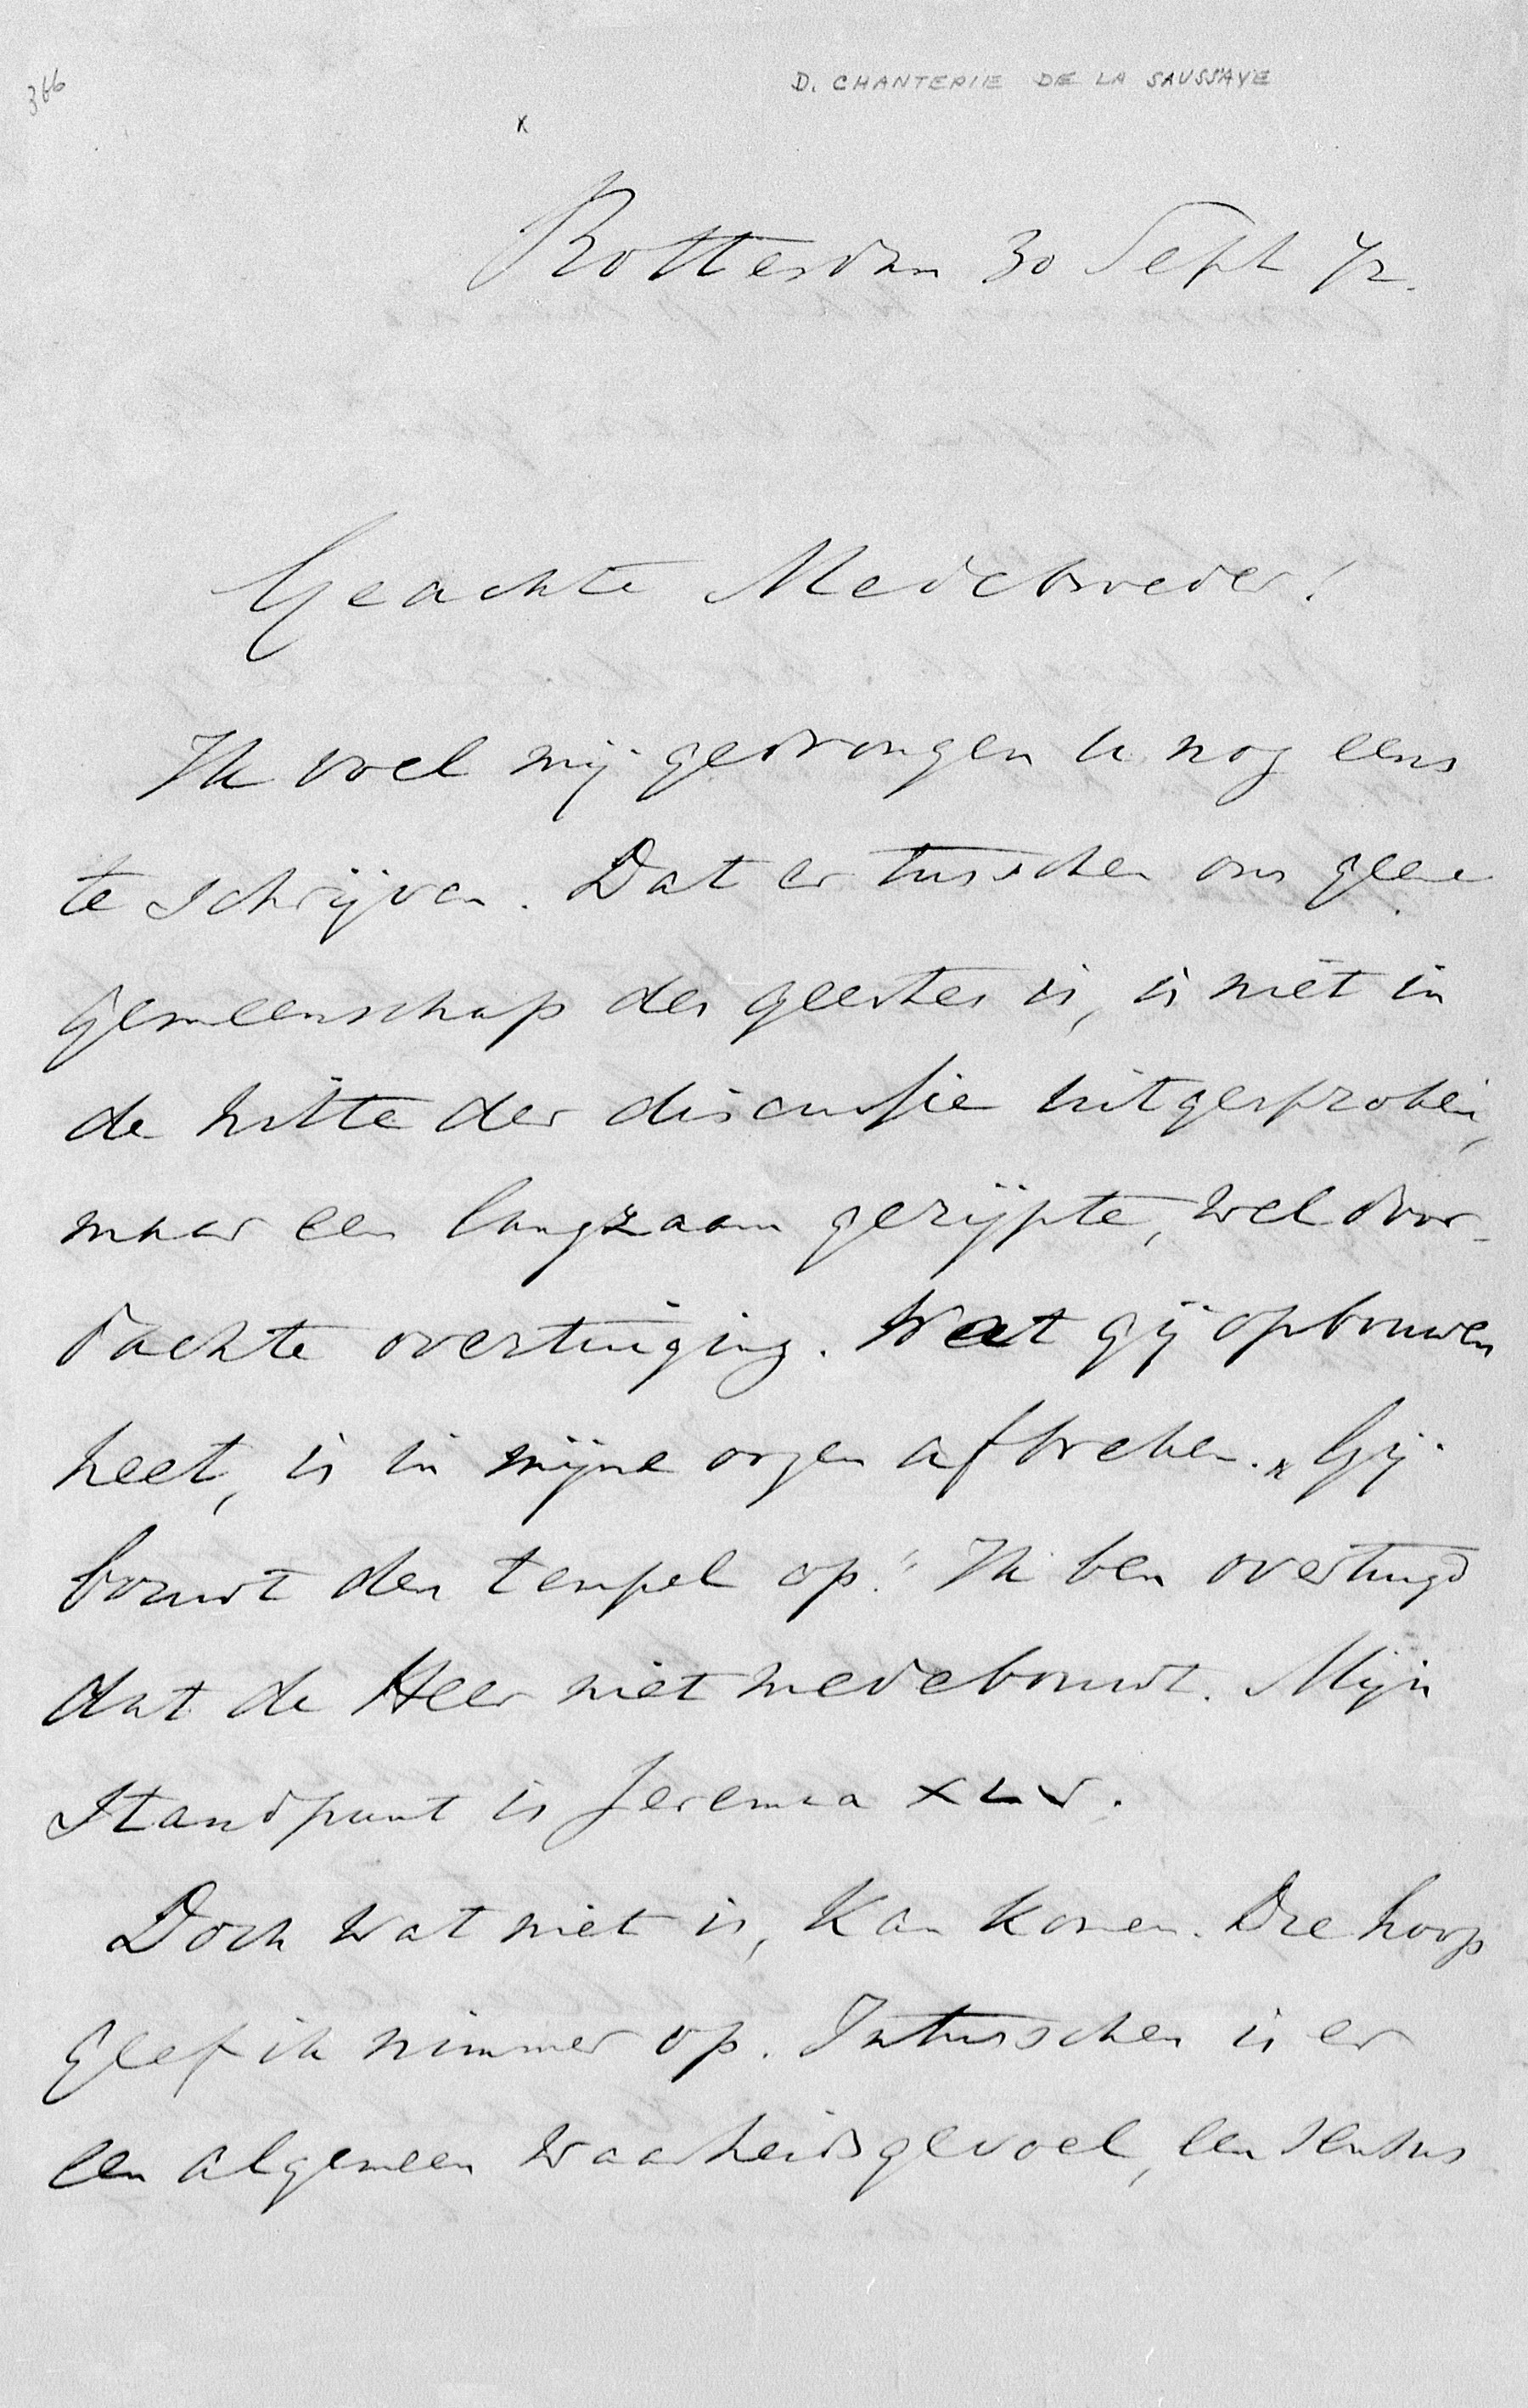 366
D. CHANTEPIE DE LA SAUSSAYE
x
Rotterdam 30 Sept 72.
Geachte Medebroeder!
Ik voel mij gedrongen u nog eens
te schrijven. Dat er tusschen ons geene
gemeenschap des geestes is, is niet in
de hitte der discussie uitgesproken,
maar een langzaam gerijpte, wel door-
dachte overtuiging. Wat gij opbouwen
heet, is in mijne oogen afbreken. „Gij
bouwt den tempel op." Ik ben overtuigd
dat de Heer niet medebouwt. Mijn
standpunt is Jeremia XLV.
Doch wat niet is, kan komen. Die hoop
geef ik nimmer op. Intusschen is er
een algemeen waarheidsgevoel, een sensus